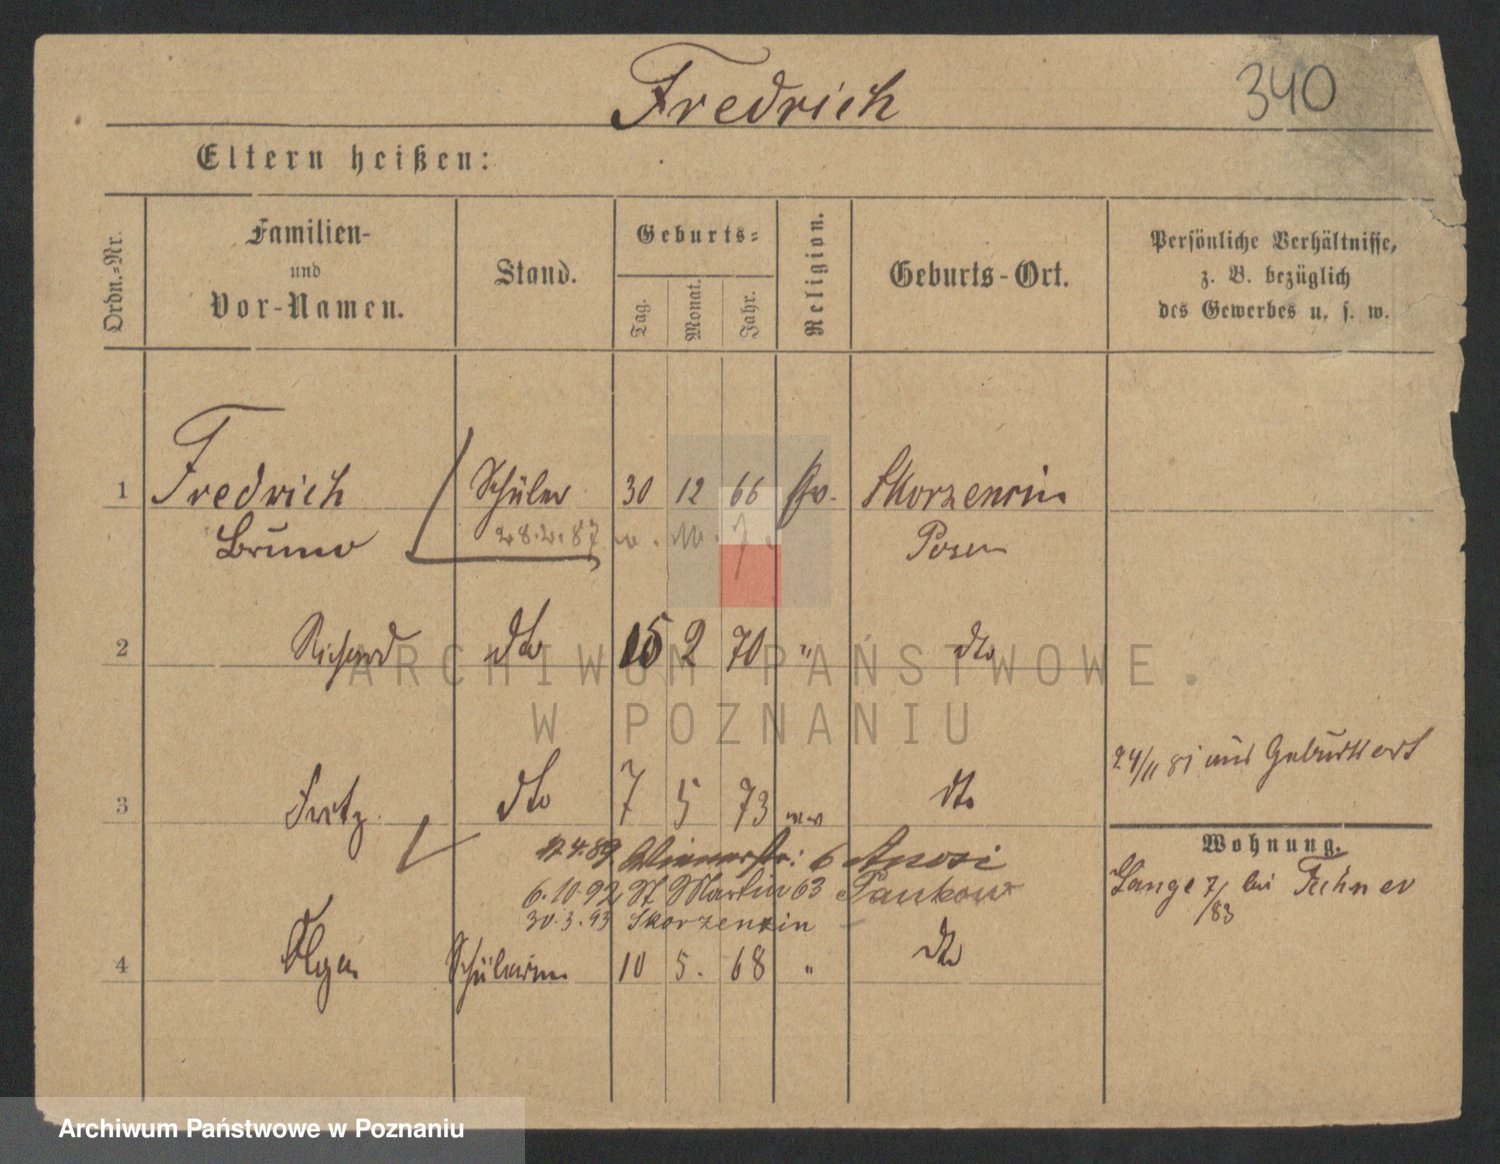 Fredrich 340
Eltern heißen:
Ordn.-Nr.
Familien-
und
Vor-Namen.
Stand.
Geburts-
Tag.
Monat.
Jahr.
Religion.
Geburts-Ort.
Persönliche Verhältnisse,
z. B. bezüglich
des Gewerbes u. s. w.
1 Fredrich Schüler 30 12 66 Skorzencin
Bruno 28.2.87 Posen
2 Richard dto 15 2 70 " dto
ARCHIWUM PAŃSTWOWE
W POZNANIU
24/11 81 aus Geburtsort
3 Fritz dto 7 5 73 dto
Wohnung.
4.89 6
6.10.92 St Martin 63 Pankow
Lange 7 bei Fehner
/83
30.3.93 Skorzencin
4 Olga Schülerin 10 5. 68 " dto
Archiwum Państwowe w Poznaniu